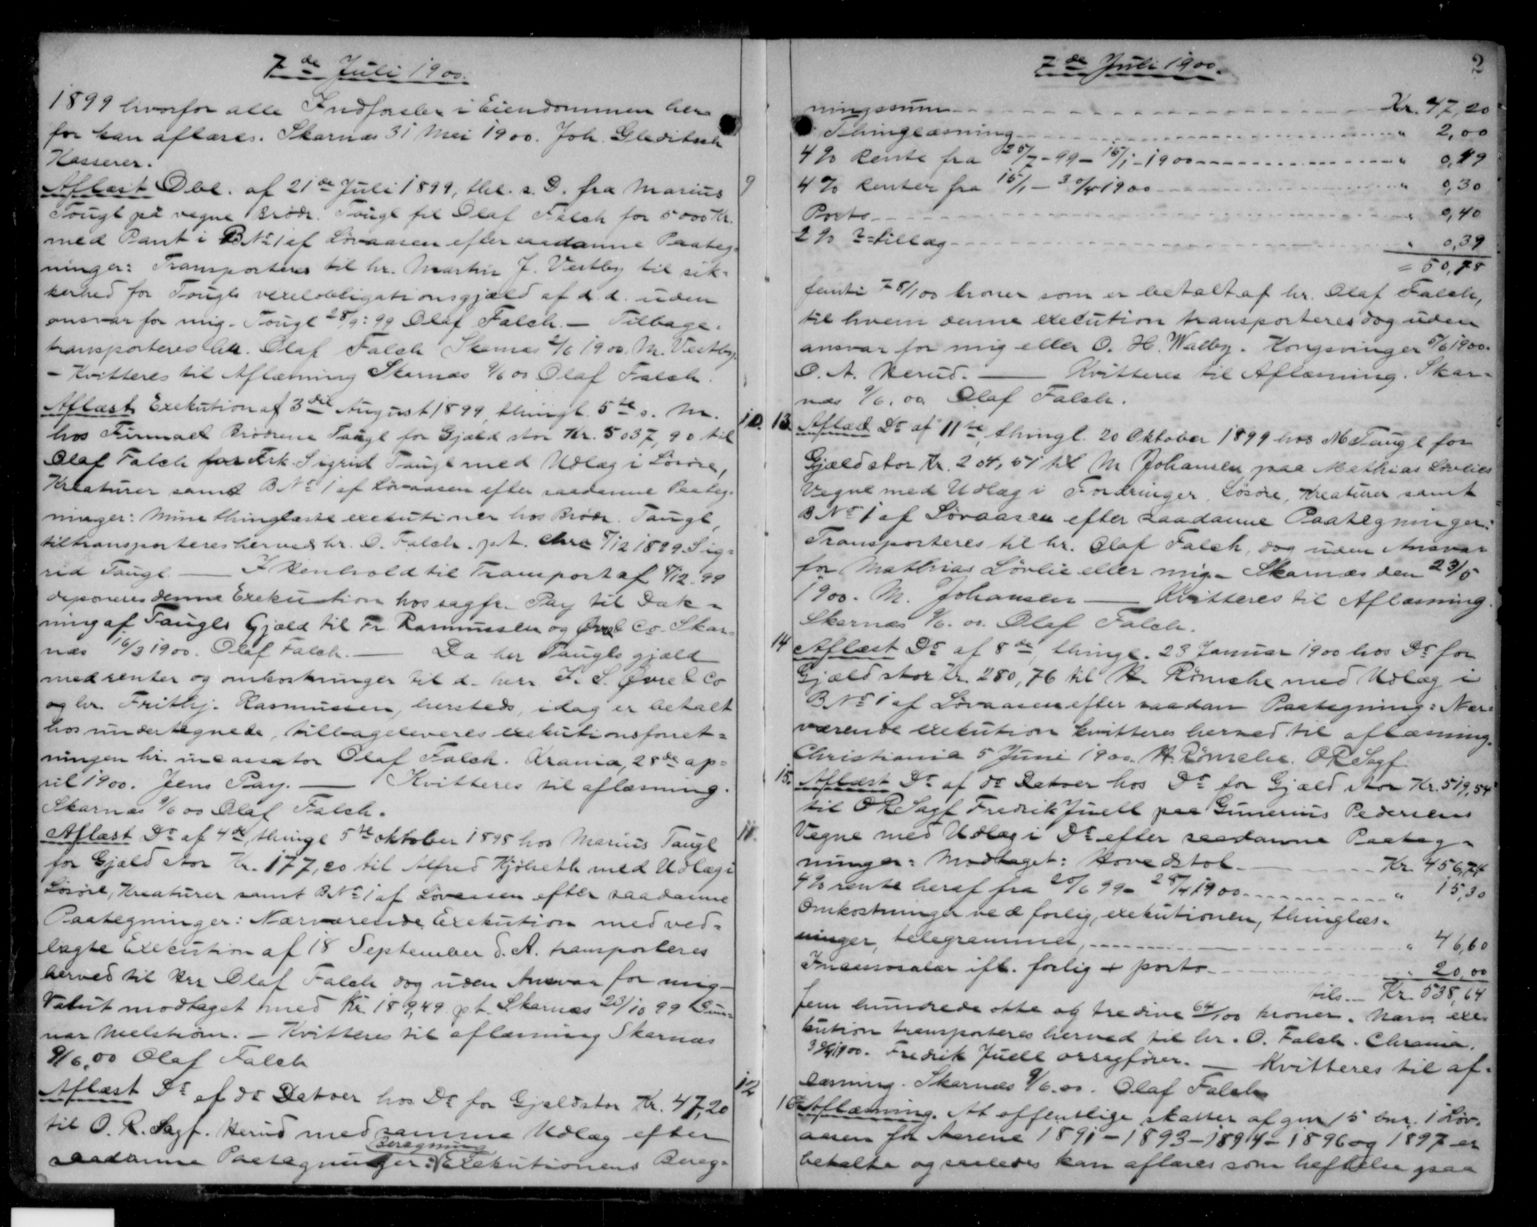 7de Juli 1900.
1899 hvorfor alle Indførsler i Eiendommen her
for kan aflæses. Skarnæs 31 Mai 1900. Joh. Gleditsch
Kasserer.
9 Aflæst Obl. af 21de Juli 1899, thl. s. D. fra Marius
Taugl på vegne Brødr. Taugl til Olaf Falch for 5000 Kr.
med Pant i BNo 1 af Løvaasen efter saadanne Paateg-
ninger: Transporteres til hr. Martin J. Vestby til sik-
kerhed for Taugls vexelobligationsgjæld af d.d. uden
ansvar for mig. Taugl 28/9 99 Olaf Falch. — Tilbage-
transporteres hr. Olaf Falch Skarnæs 2/6 1900. M. Vestby
— Kvitteres til Aflæsning Skarnæs 9/6 00 Olaf Falch.
10. Aflæst Exekution af 3die August 1899, thingl. 5te s. M.
hos Firmaet Brødrene Taugl for Gjæld stor Kr. 5037,90 til
Olaf Falch for Frk. Sigrid Taugl med Udlæg i Løsøre,
Kreaturer samt BNo 1 af Løvaasen efter saadanne Paateg-
ninger: Mine thinglæste exekutioner hos Brødr. Taugl,
tiltransporteres herved hr. O. Falch. p.t. Chra /12 1899 Sig-
rid Taugl. — I Henhold til Transport af /12 99
deponeres denne Exekution hos sagfr. Pay til Dæk-
ning af Taugls Gjæld til Fr Rasmussen og Øvre & Co. Skar-
næs 16/3 1900. Olaf Falch. — Da hr Taugls gjæld
med renter og omkostninger til d. herr. F. S. Øvre & Co
og hr. Frithj. Rasmussen, hersteds, idag er betalt
hos undertegnede, tilbageleveres exekutionsforret-
ningen hr. incassator Olaf Falch. Krania, 28de ap-
ril 1900. Jens Pay. — Kvitteres til aflæsning.
Skarnæs 9/6 00 Olaf Falch.
11. Aflæst Do af 4de, thingl 5te oktober 1898 hos Marius Taugl
for Gjæld stor Kr. 177,20 til Alfred Kjølseth med Udlæg i
Løsøre, Kreaturer samt BNo 1 af Løvaasen efter saadanne
Paategninger: Nærværende Exekution med ved-
lagte Exekution af 18 September d. A. transporteres
herved til Hrr Olaf Falch dog uden Ansvar for mig—
Valut modtaget med Kr 189,49 pt. Skarnæs 23/10 99 Gun-
nar Melstrøm. — Kvitteres til aflæsning Skarnæs
9/6.00 Olaf Falch
12 Aflæst Do af do Datoer hos Do for Gjæld stor Kr. 47,20
til O. R. Sagf. Herud med samme Udlæg efter
saadanne Paategninger: Exekutionens Bereg-
7de Juli 1900. 2
ningssum Kr. 47,20
Thinglæsning " 2,00
4 % Rente fra 25/7 - 99 - 15/1 - 1900 " 0,49
4 % Renter fra 15/1 - 30/4 1900 " 0,30
Porto " 0,40
2 % tillæg " 0,39
= 50,78
femti 78/100 kroner som er betalt af hr. Olaf Falch,
til hvem denne exekution transporteres dog uden
ansvar for mig eller O. H. Walby. Kongsvinger 5/6 1900.
O. A. Herud. — Kvitteres til Aflæsning. Skar-
næs 9/6.00 Olaf Falch.
13. Aflæst Do af 11te, thingl. 20 Oktober 1899 hos M Taugl for
Gjæld stor Kr. 204,57 til M Johansen paa Mathias Løvlies
Vegne med Udlæg i Fordringer, Løsøre, Kreaturer samt
BNo 1 af Løvaasen efter saadanne Paategninger:
Transporteres til hr. Olaf Falch, dog uden Ansvar
for Mathias Løvlie eller mig. Skarnæs den 23/5
1900. M. Johansen — Kvitteres til Aflæsning.
Skarnæs 9/6.00. Olaf Falch.
14 Aflæst Do af 8de, thingl. 23 Januar 1900 hos Do for
Gjæld stor Kr. 280,76 til H. Rømcke med Udlæg i
BNo 1 af Løvaasen efter saadan Paategning: Nær-
værende exekution kvitteres herved til aflæsning.
Christiania 5 Juni 1900. H. Rømcke. O R Sagf
15. Aflæst Do af do Datoer hos Do for Gjæld stor Kr. 519,54
til O R Sagf Fredrik Juell paa Gunerius Pedersens
Vegne med Udlæg i Do efter saadanne Paateg-
ninger: Modtaget: Hovedstol Kr. 456,74
4 % rente heraf fra 20/6 99 - 28/4 1900 " 15,30
Omkostninger ved forlig, exekutionen, thinglæs-
ninger, telegrammer, " 46,60
Incassosalær ifl. forlig + porto " 20,00
tils. — Kr. 538,64
fem hundrede otte og tredive 64/100 kroner. Nærv. exe-
kution transporteres herved til hr. O. Falch. Chrania.
30/4 1900. Fredrik Juell orsagfører. — Kvitteres til af-
læsning. Skarnæs 9/6.00. Olaf Falch
16. Aflæsning. At offentlige skatter af gnr 15 bnr. 1 Løv-
aasen for Aarene 1891 - 1893 - 1894 - 1896 og 1897 er
betalte og saaledes kan aflæses som heftelse paa